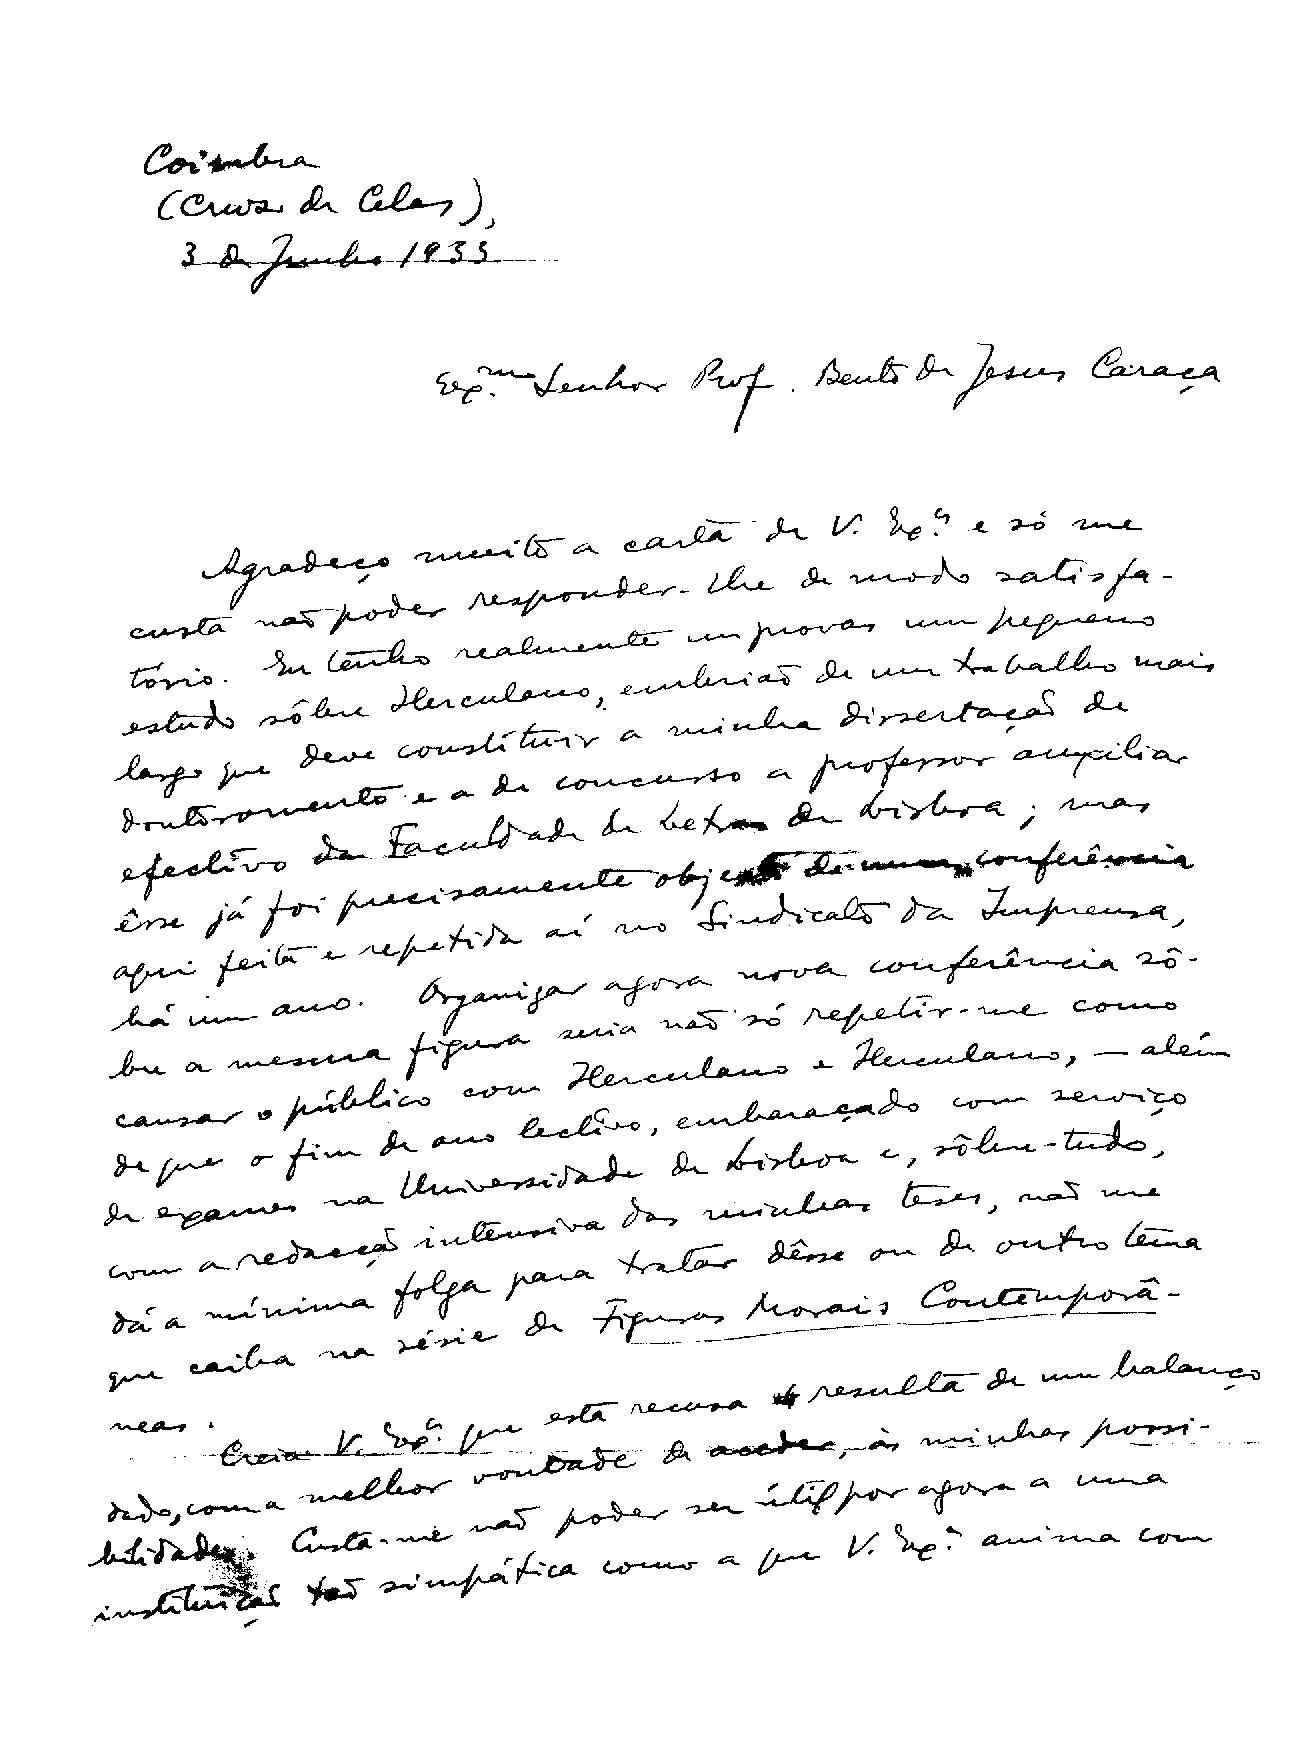 Coimbra
(Cruz de Celas),
3 de Junho 1933
Exp.mo Senhor Prof. Bento de Jesus Caraça
Agradeço muito a carta de V. Exp.a e só me
custa não poder responder-lhe de modo satisfa-
tório. Eu tenho realmente em provas um pequeno
estudo sôbre Herculano, embrião de um trabalho mais
largo que deve constituir a minha dissertação de
doutoramento e a de concurso a professor auxiliar
efectivo da Faculdade de Letras de Lisboa; mas
êsse já foi precisamente objecto de uma conferência
aqui feita e repetida aí no Sindicato da Imprensa,
há um ano. Organizar agora nova conferência sô-
bre a mesma figura seria não só repetir-me como
cansar o público com Herculano e Herculano, — além
de que o fim de ano lectivo, embaraçado com serviço
de exames na Universidade de Lisboa e, sôbre-tudo,
com a redacção intensiva das minhas teses, não me
dá a mínima folga para tratar dêsse ou de outro tema
que caiba na série de Figuras Morais Contemporâ-
neas.
Creia V. Exp.a que esta recusa resulta de um balanço
dado, com a melhor vontade de aceder, às minhas possi-
bilidades. Custa-me não poder ser útil por agora a uma
instituição tão simpática como a que V. Exp.a anima com